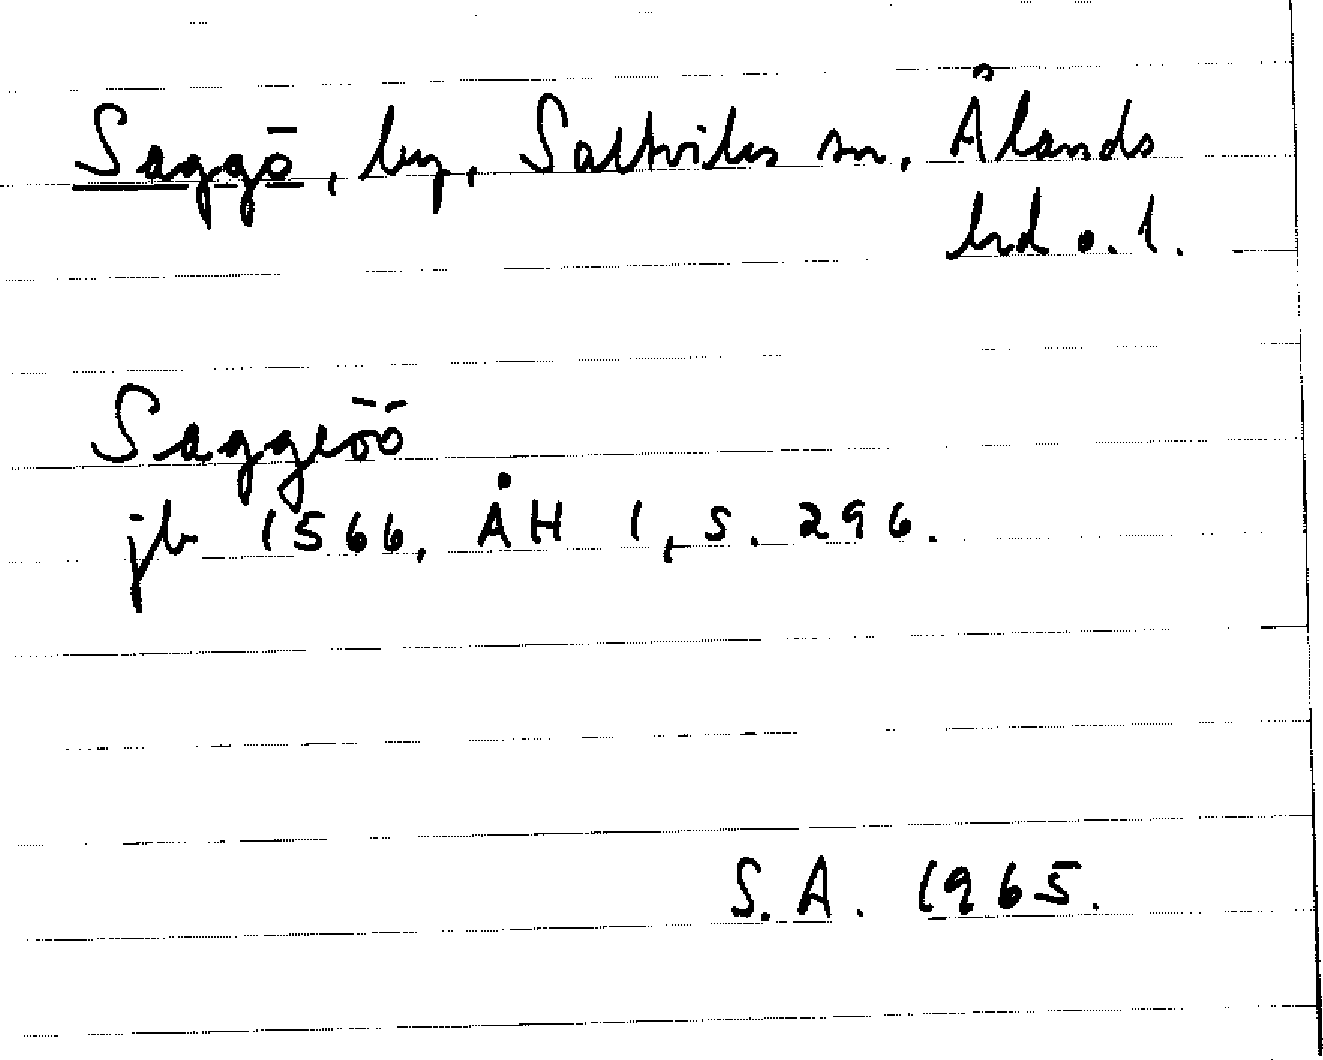 Saggö, by, Saltviks sn, Ålands
hd o. l.
Saggeöö
jb 1566, ÅH 1, s. 296.
S.A. 1965.